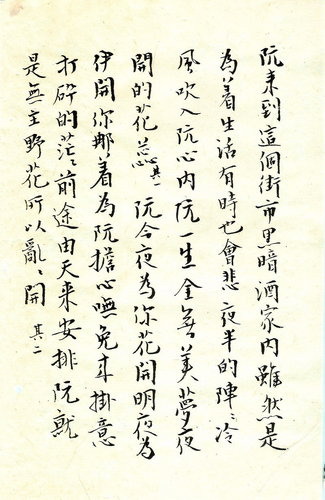 阮来到這個街市黑暗酒家內雖然是
為着生活有時也會悲夜半的陣々冷
風吹入阮心內阮一生全無美夢夜
開的花蕊其一 阮今夜為你花開明夜為
伊開你那着為阮擔心嘸免来掛意
打碎的茫々前途由天来安排阮就
是無主野花所以亂々開 其二